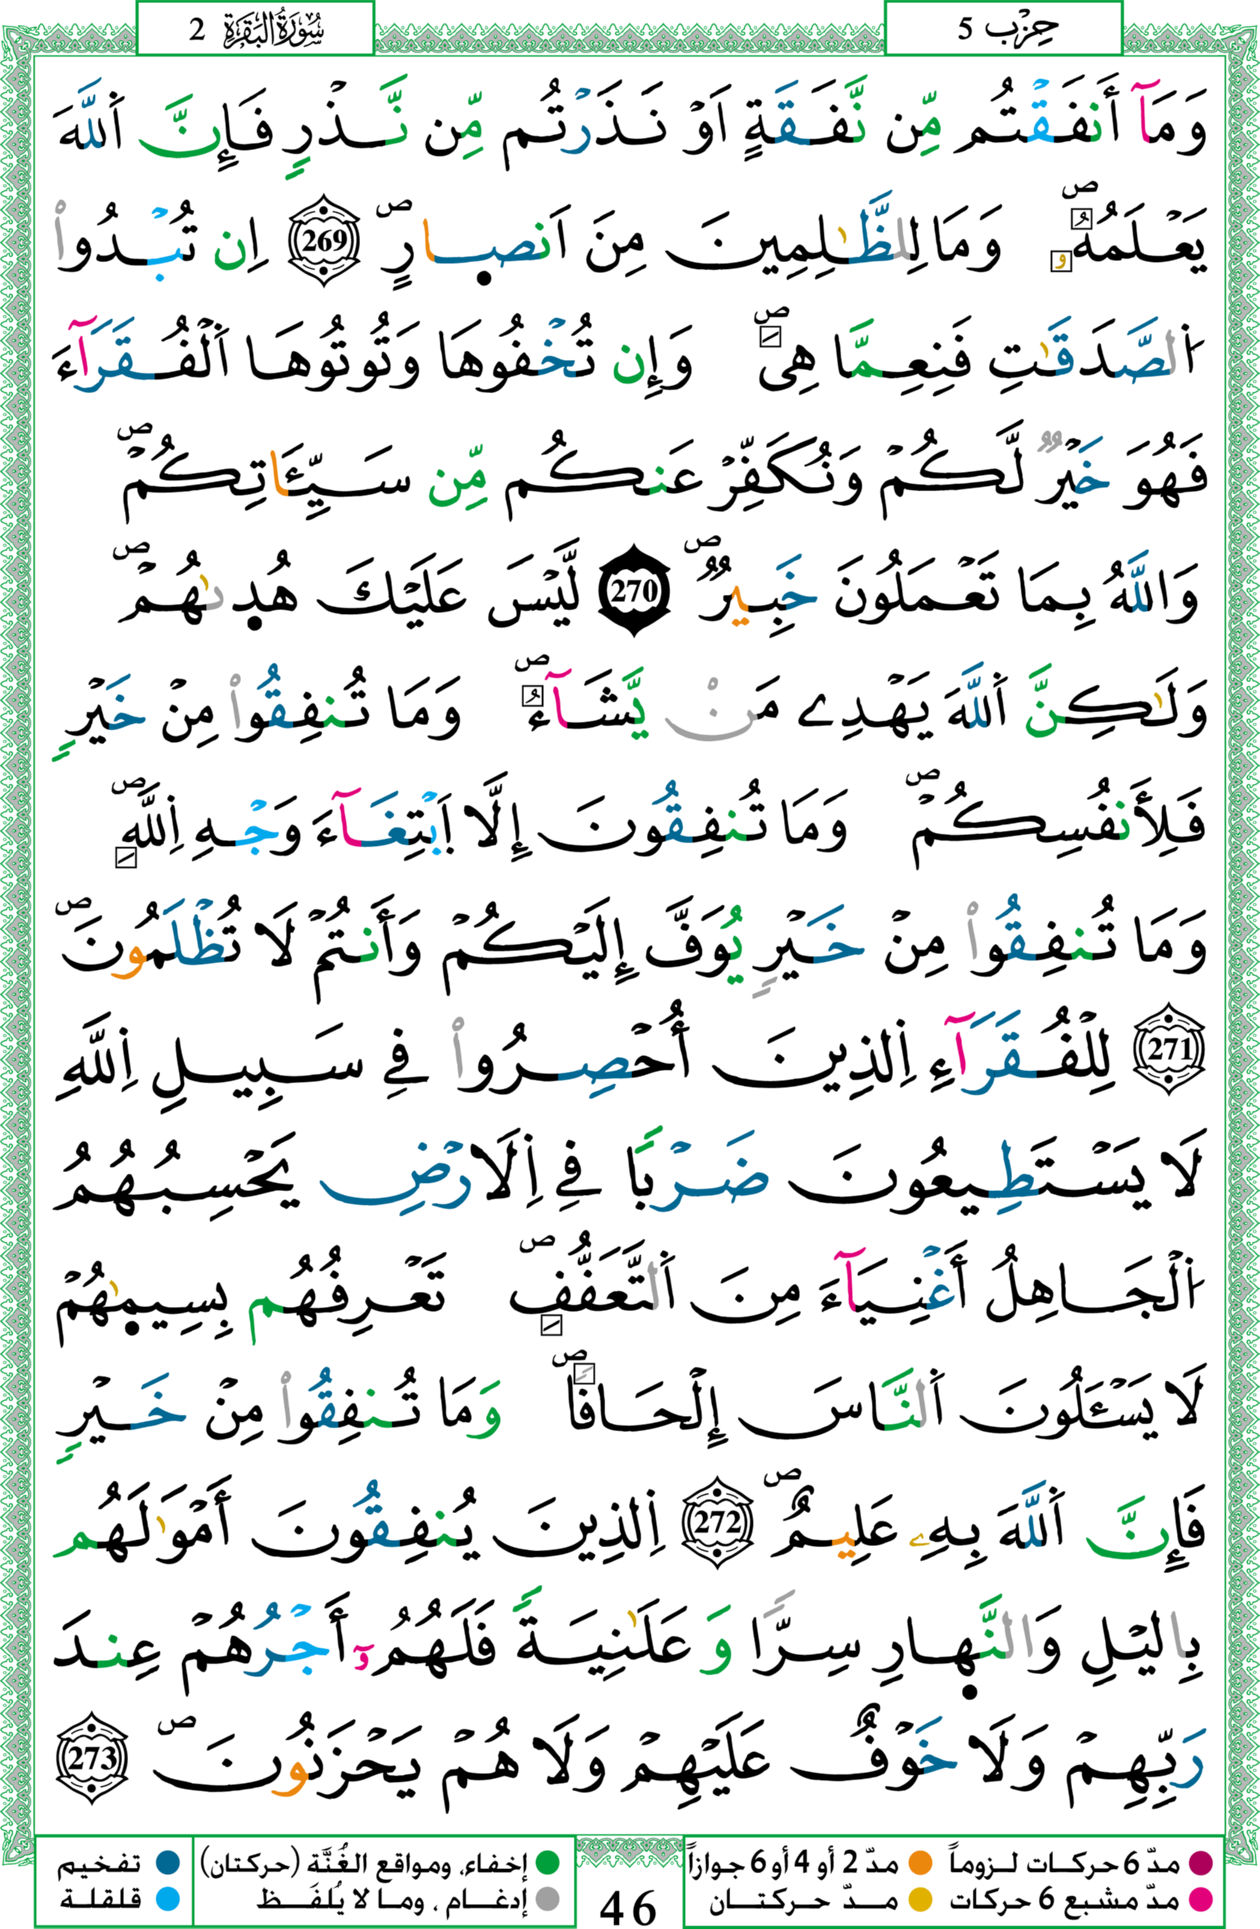 حِزْب 5
سُورَةُ البَقَرَةِ 2
وَمَآ أَنفَقْتُم مِّن نَّفَقَةٍ اَوْ نَذَرْتُم مِّن نَّذْرٖ فَإِنَّ اَ۬للَّهَ
يَعْلَمُهُۥۖ وَمَا لِلظَّٰلِمِينَ مِنَ اَنصارٍۖ 269 اِن تُبْدُواْ
اُ۬لصَّدَقَٰتِ فَنِعِمَّا هِيَۖ وَإِن تُخْفُوهَا وَتُوتُوهَا اَ۬لْفُقَرَآءَ
فَهُوَ خَيْرٞ لَّكُمْ وَنُكَفِّرْ عَنكُم مِّن سَيِّـَٔاتِكُمْۖ
وَاللَّهُ بِمَا تَعْمَلُونَ خَبِيرٞۖ 270 لَّيْسَ عَلَيْكَ هُدىٰهُمْۖ
وَلَٰكِنَّ اَ۬للَّهَ يَهْدِے مَنْ يَّشَآءُۖ وَمَا تُنفِقُواْ مِنْ خَيْرٖ
فَلِأَنفُسِكُمْۖ وَمَا تُنفِقُونَ إِلَّا اَ۪بْتِغَآءَ وَجْهِ اِ۬للَّهِۖ
وَمَا تُنفِقُواْ مِنْ خَيْرٖ يُوَفَّ إِلَيْكُمْ وَأَنتُمْ لَا تُظْلَمُونَۖ
271 لِلْفُقَرَآءِ اِ۬لذِينَ أُحْصِرُواْ فِے سَبِيلِ اِ۬للَّهِ
لَا يَسْتَطِيعُونَ ضَرْباٗ فِے اِ۬لَارْضِ يَحْسِبُهُمُ
اُ۬لْجَاهِلُ أَغْنِيَآءَ مِنَ اَ۬لتَّعَفُّفِۖ تَعْرِفُهُم بِسِيمٰهُمْ
لَا يَسْـَٔلُونَ اَ۬لنَّاسَ إِلْحَافاٗۖ وَمَا تُنفِقُواْ مِنْ خَيْرٖ
فَإِنَّ اَ۬للَّهَ بِهِۦ عَلِيمٌۖ 272 اِ۬لذِينَ يُنفِقُونَ أَمْوَٰلَهُم
بِاليْلِ وَالنَّهارِ سِرّاٗ وَعَلَٰنِيَةٗ فَلَهُمُۥٓ أَجْرُهُمْ عِندَ
رَبِّهِمْ وَلَا خَوْفٌ عَلَيْهِمْ وَلَا هُمْ يَحْزَنُونَۖ 273
مدّ 6 حركات لـزوماً مدّ 2 أو 4 أو 6 جوازاً إخفاء، ومواقع الغُنَّة (حركتان) تفخيم
مدّ مشبع 6 حركات مـدّ حـركتـان إدغـام ، ومـا لا يُلفَـظ قلقلة
46